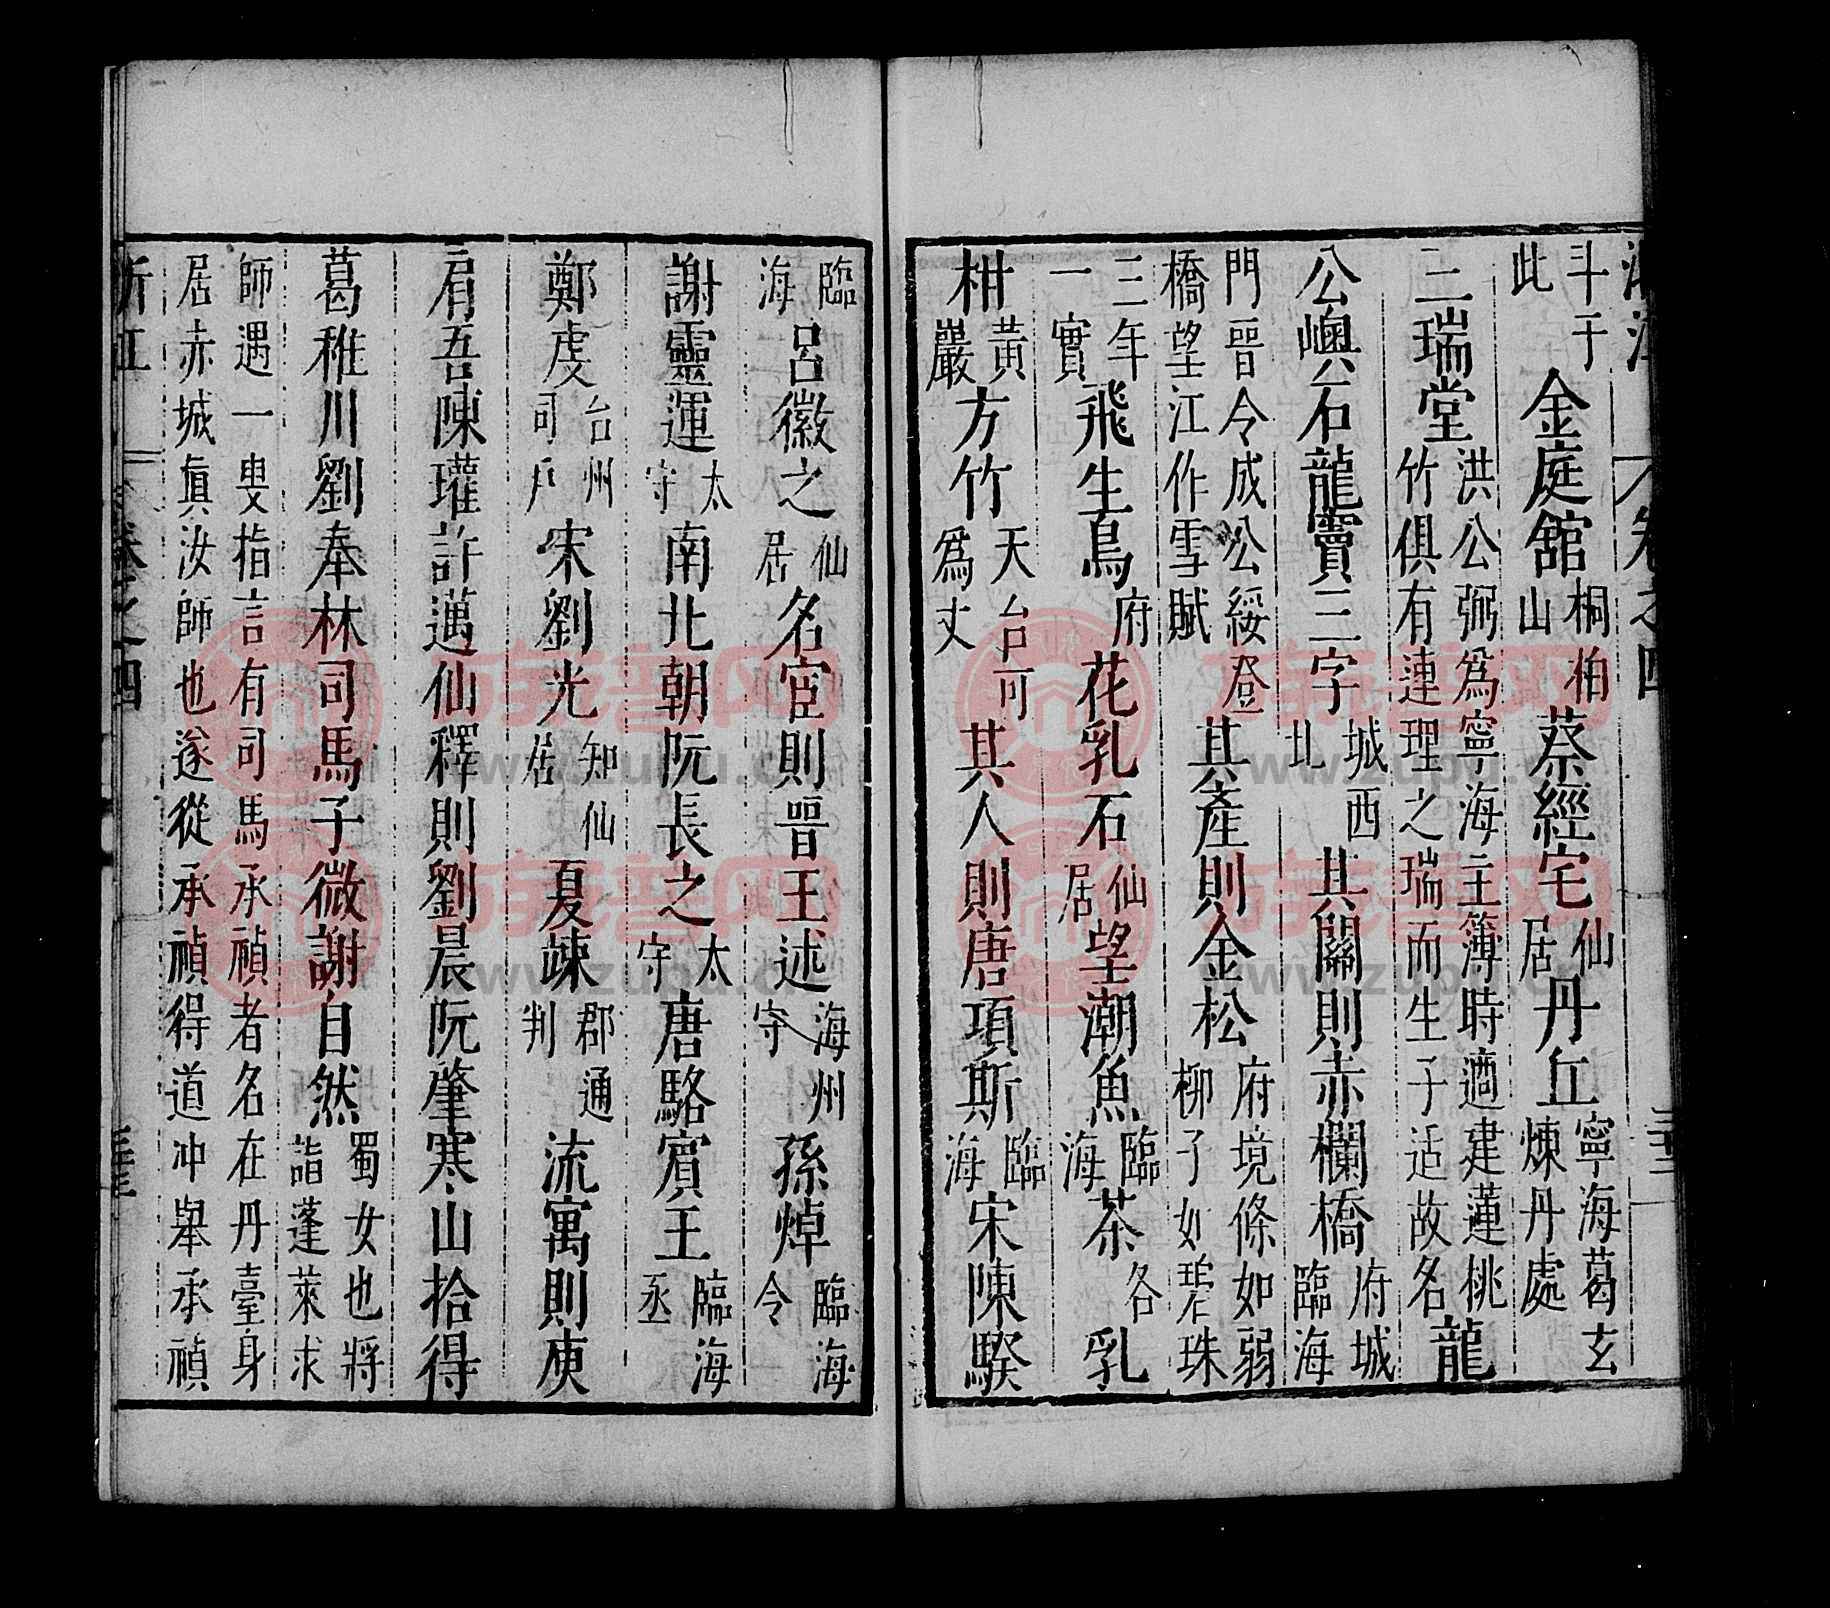 斗于此金庭舘桐栢山蔡經宅仙居丹丘寧海葛玄煉丹處
三瑞堂洪公弼爲寧海主簿時適建蓮桃竹俱有連理之瑞而生子适故名龍
公嶼石龍竇三字城西北其關則赤欄橋府城臨海
門晉令成公綏登橋望江作雪賦其產則金松府境條如弱柳子如碧珠
三年一實飛生鳥府花乳石仙居望潮魚臨海茶各乳
柑黃巖方竹天台可爲丈其人則唐項斯臨海宋陳騤
臨海呂徽之仙居名宦則晉王述海州守孫焯臨海令
謝靈運太守南北朝阮長之太守唐駱賓王臨海丞
鄭虔台州司戶宋劉光知仙居夏竦郡通判流寓則庾
肩吾陳瓘許邁仙釋則劉晨阮肇寒山拾得
葛稚川劉奉林司馬子微謝自然蜀女也將詣蓬萊求
師遇一叟指言有司馬承禎者名在丹臺身居赤城眞汝師也遂從承禎得道冲舉承禎
浙江 卷之四
万家谱网
www.zupu.cn